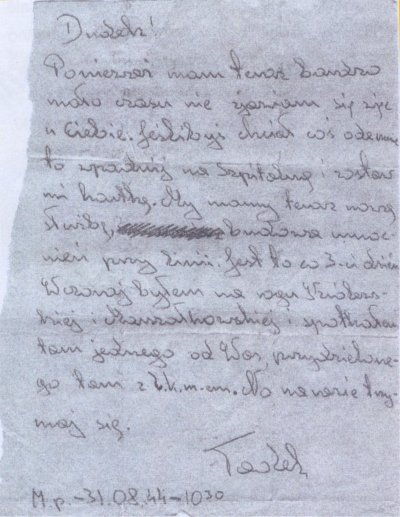 Dudek!
Ponieważ mam teraz bardzo
mało czasu nie zjawiam się
u Ciebie. Jeśli byś chciał coś odemnie
to wpadnij na Szpitalną i zostaw
mi kartkę. My mamy teraz nową
służbę, budowa umoc-
nień przy Linii. Jest to co 3-ci dzień
Wczoraj byłem na rogu Królew-
skiej i Marszałkowskiej i spotkałem
tam jednego od Was, przydzielone-
go tam z m. No narazie trzy-
maj się.
Tadek
M.p. - 31.08.44 - 1030